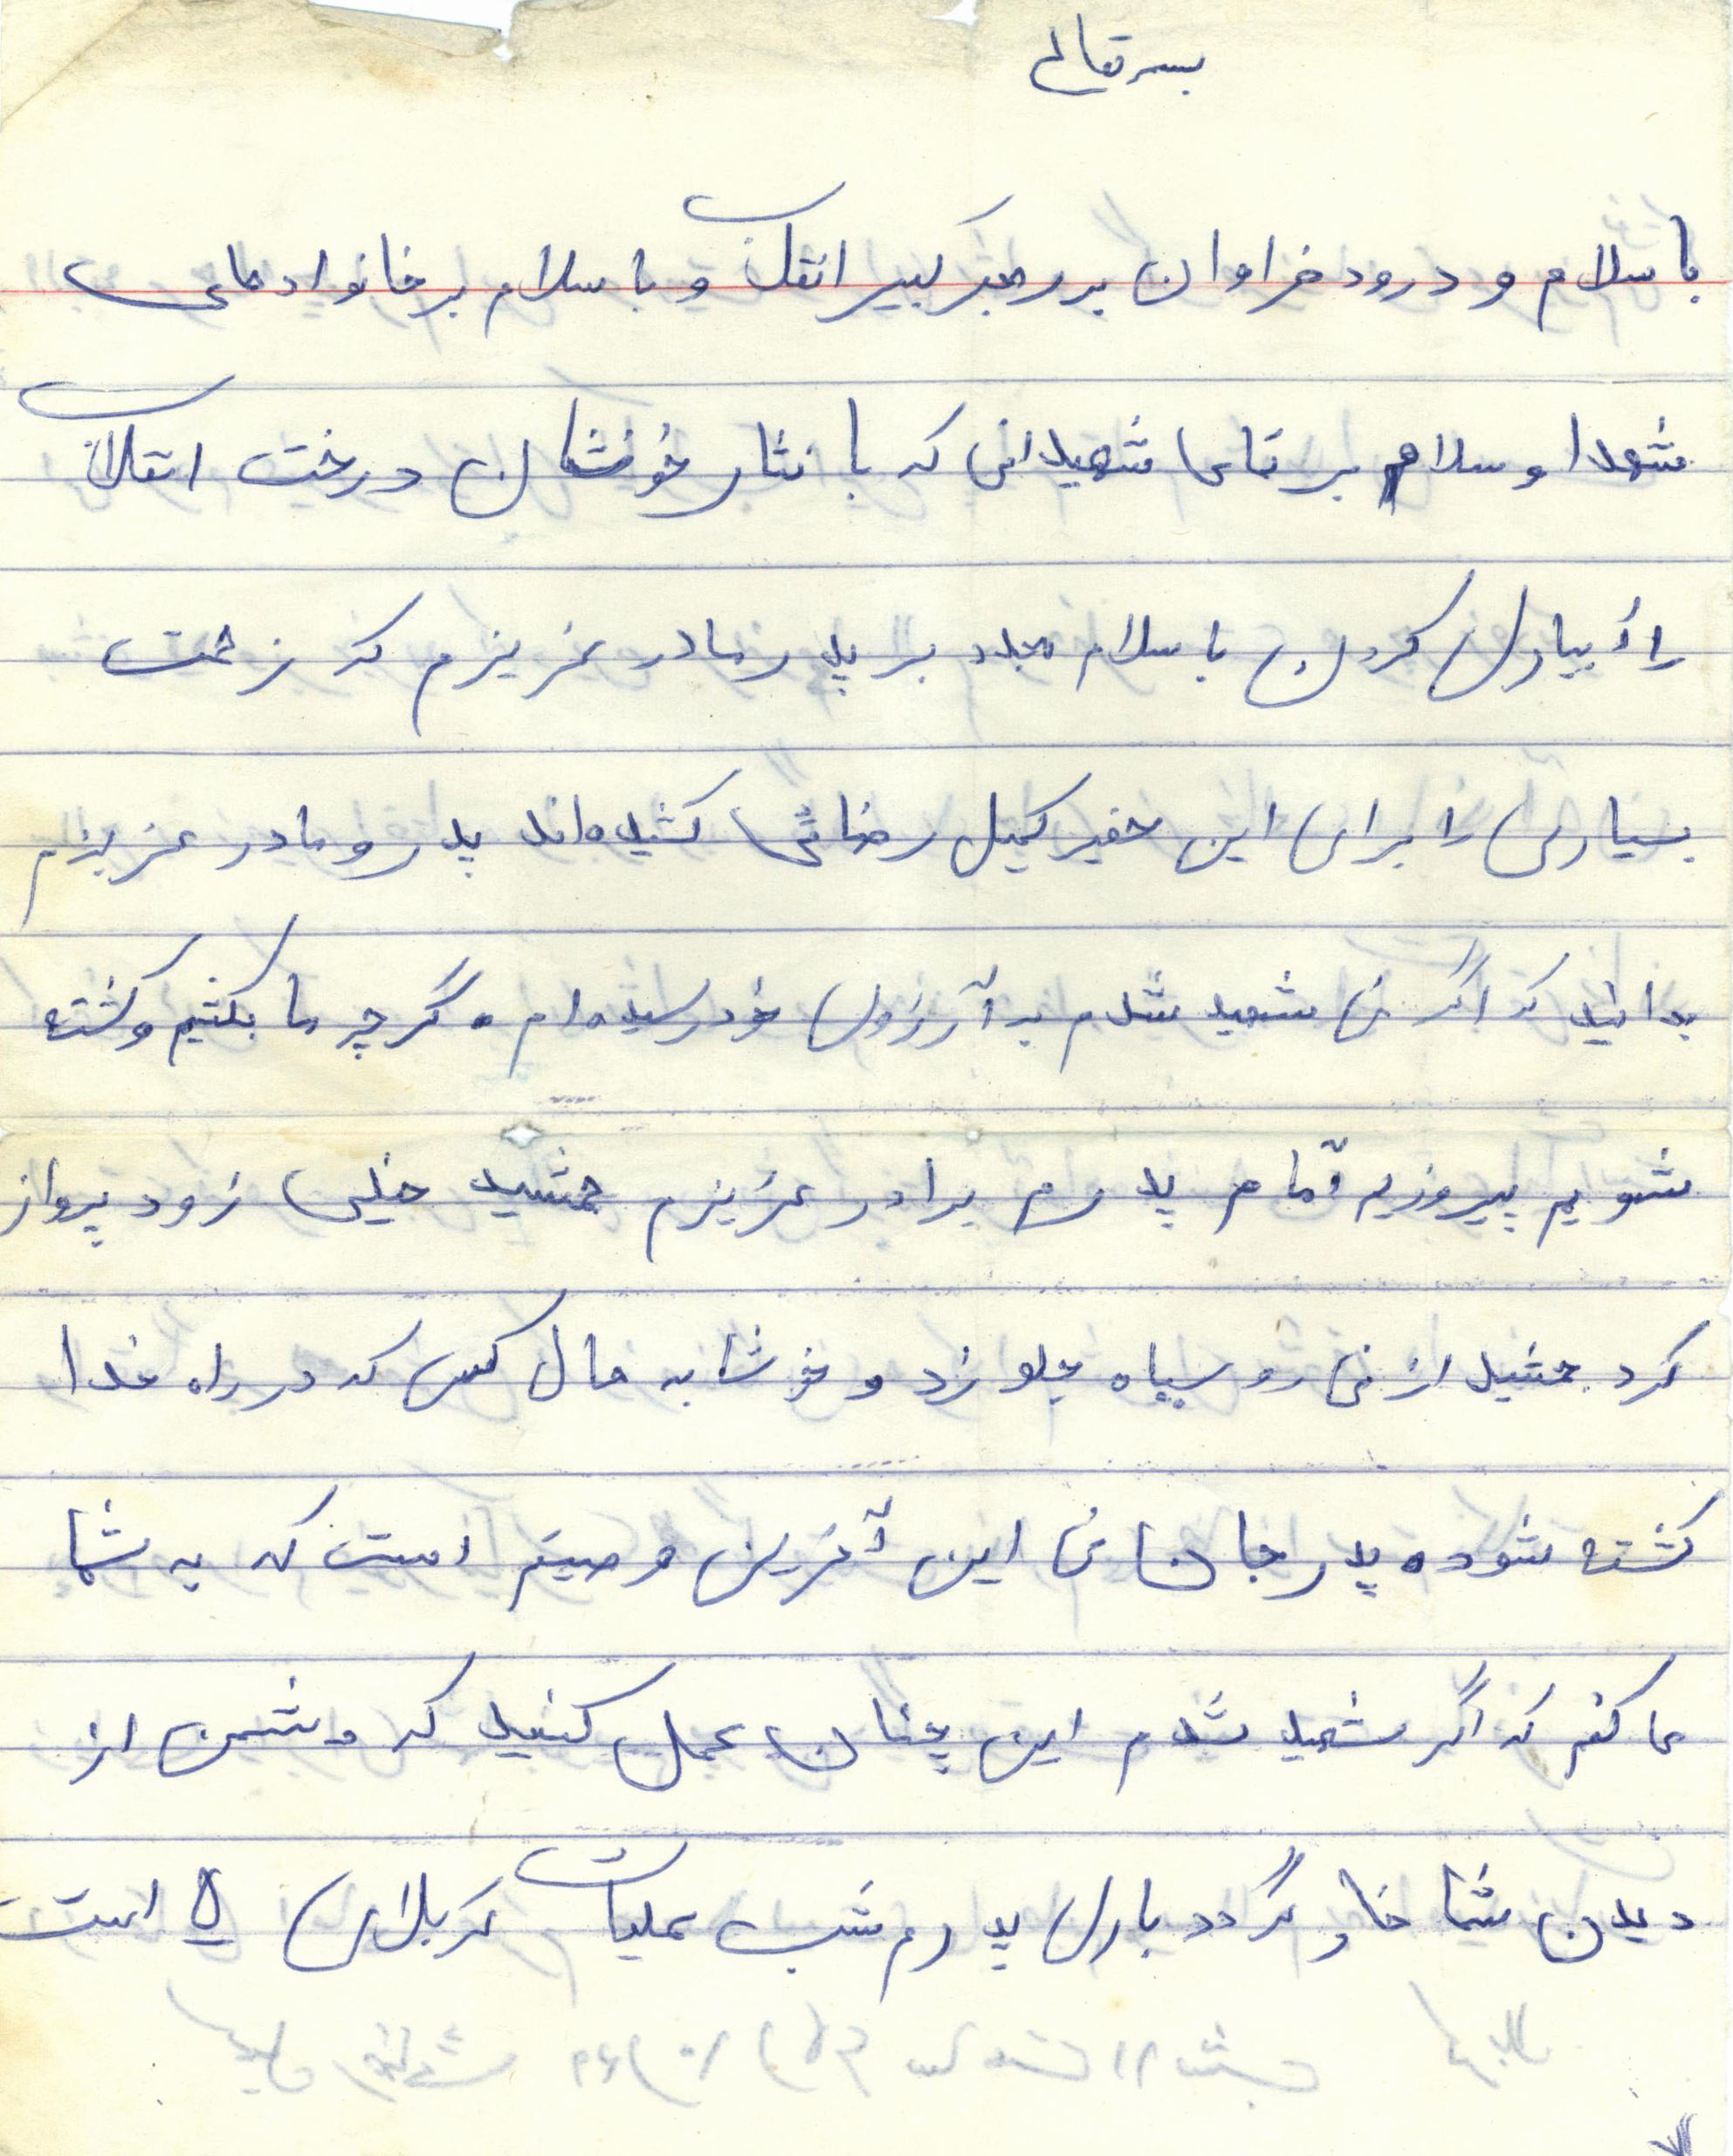 بسمه تعالی
با سلام و درود فراوان بر رهبر کبیر انقلاب و با سلام بر خانوادهای
شهدا و سلام بر تمامی شهیدانی که با نثار خونشان درخت انقلاب
را آبیاری کردن با سلام مجدد بر پدر و مادر عزیزم که زحمت
بسیاری را برای این حقیر کمیل رضائی کشیده اند پدر و مادر عزیزم
بدانید که اگر من شهید شدم به آرزوی خود رسیده ام ه گرچه ما بکشیم و کشته
شویم پیروزیم آمام پدرم برادر عزیزم جمشید خیلی زود پرواز
کرد جمشید از من رو سیاه جلو زد و خوشا به حال کس که در راه خدا
کشته شود ه پدر جان من این آخرین وصیتم است که به شما
می کنم که اگر شهید شدم این چنان عمل کنید که دشمن از
دیدن شما خار گردد باری پدرم شب عملیات کربلای ۵ است